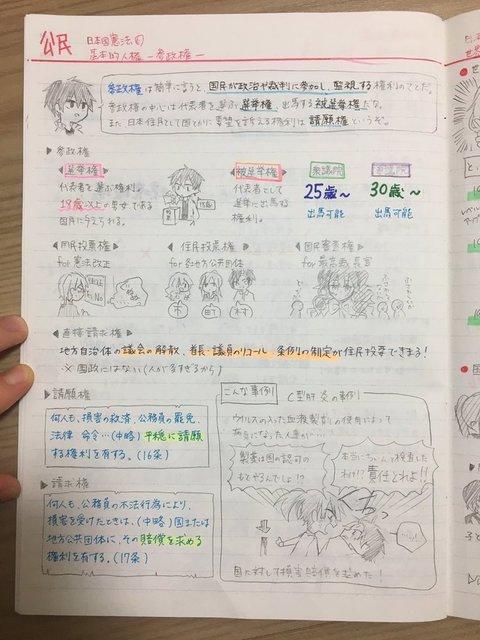 公民
日本国憲法
基本的人権 ー参政権ー
参政権は簡単に言うと、国民が政治や裁判に参加し、監視する権利のことだ。
参政権の中心は代表者を選ぶ選挙権、出馬する被選挙権だな。
また日本住民として国とかに要望を訴える権利は請願権というぞ。
▶参政権
◀選挙権▶
代表者を選ぶ権利。
18歳以上の男女である
国民に与えられる。
◀被選挙権▶
代表者として
選挙に出馬する
権利。
衆議院
25歳〜
出馬可能
参議院
30歳〜
出馬可能
◀国民投票権▶
for 憲法改正
◀住民投票権▶
for 地方公共団体
市
町
村
◀国民審査権▶
for 最高裁長官
◀直接請求権▶
地方自治体の議会の解散、首長・議員のリコール、条例の制定が住民投票できまる!
※国政にはない(人が多すぎるから)
▶請願権
何人も、損害の救済、公務員の罷免、
法律 命令…(中略)平穏に請願
する権利を有する。(16条)
▶請求権
何人も、公務員の不法行為により、
損害を受けたときは、(中略)国または
地方公共団体に、その賠償を求める
権利を有する。(17条)
こんな事例
C型肝炎の事例
ウイルスの入った血液製剤の使用によって
病気になった人達が…
製薬は国の認可の
もとやるんでしょ!?
本当にちゃんと検査した
わけ!?責任とれよ!!
国に対して損害賠償を求めた!